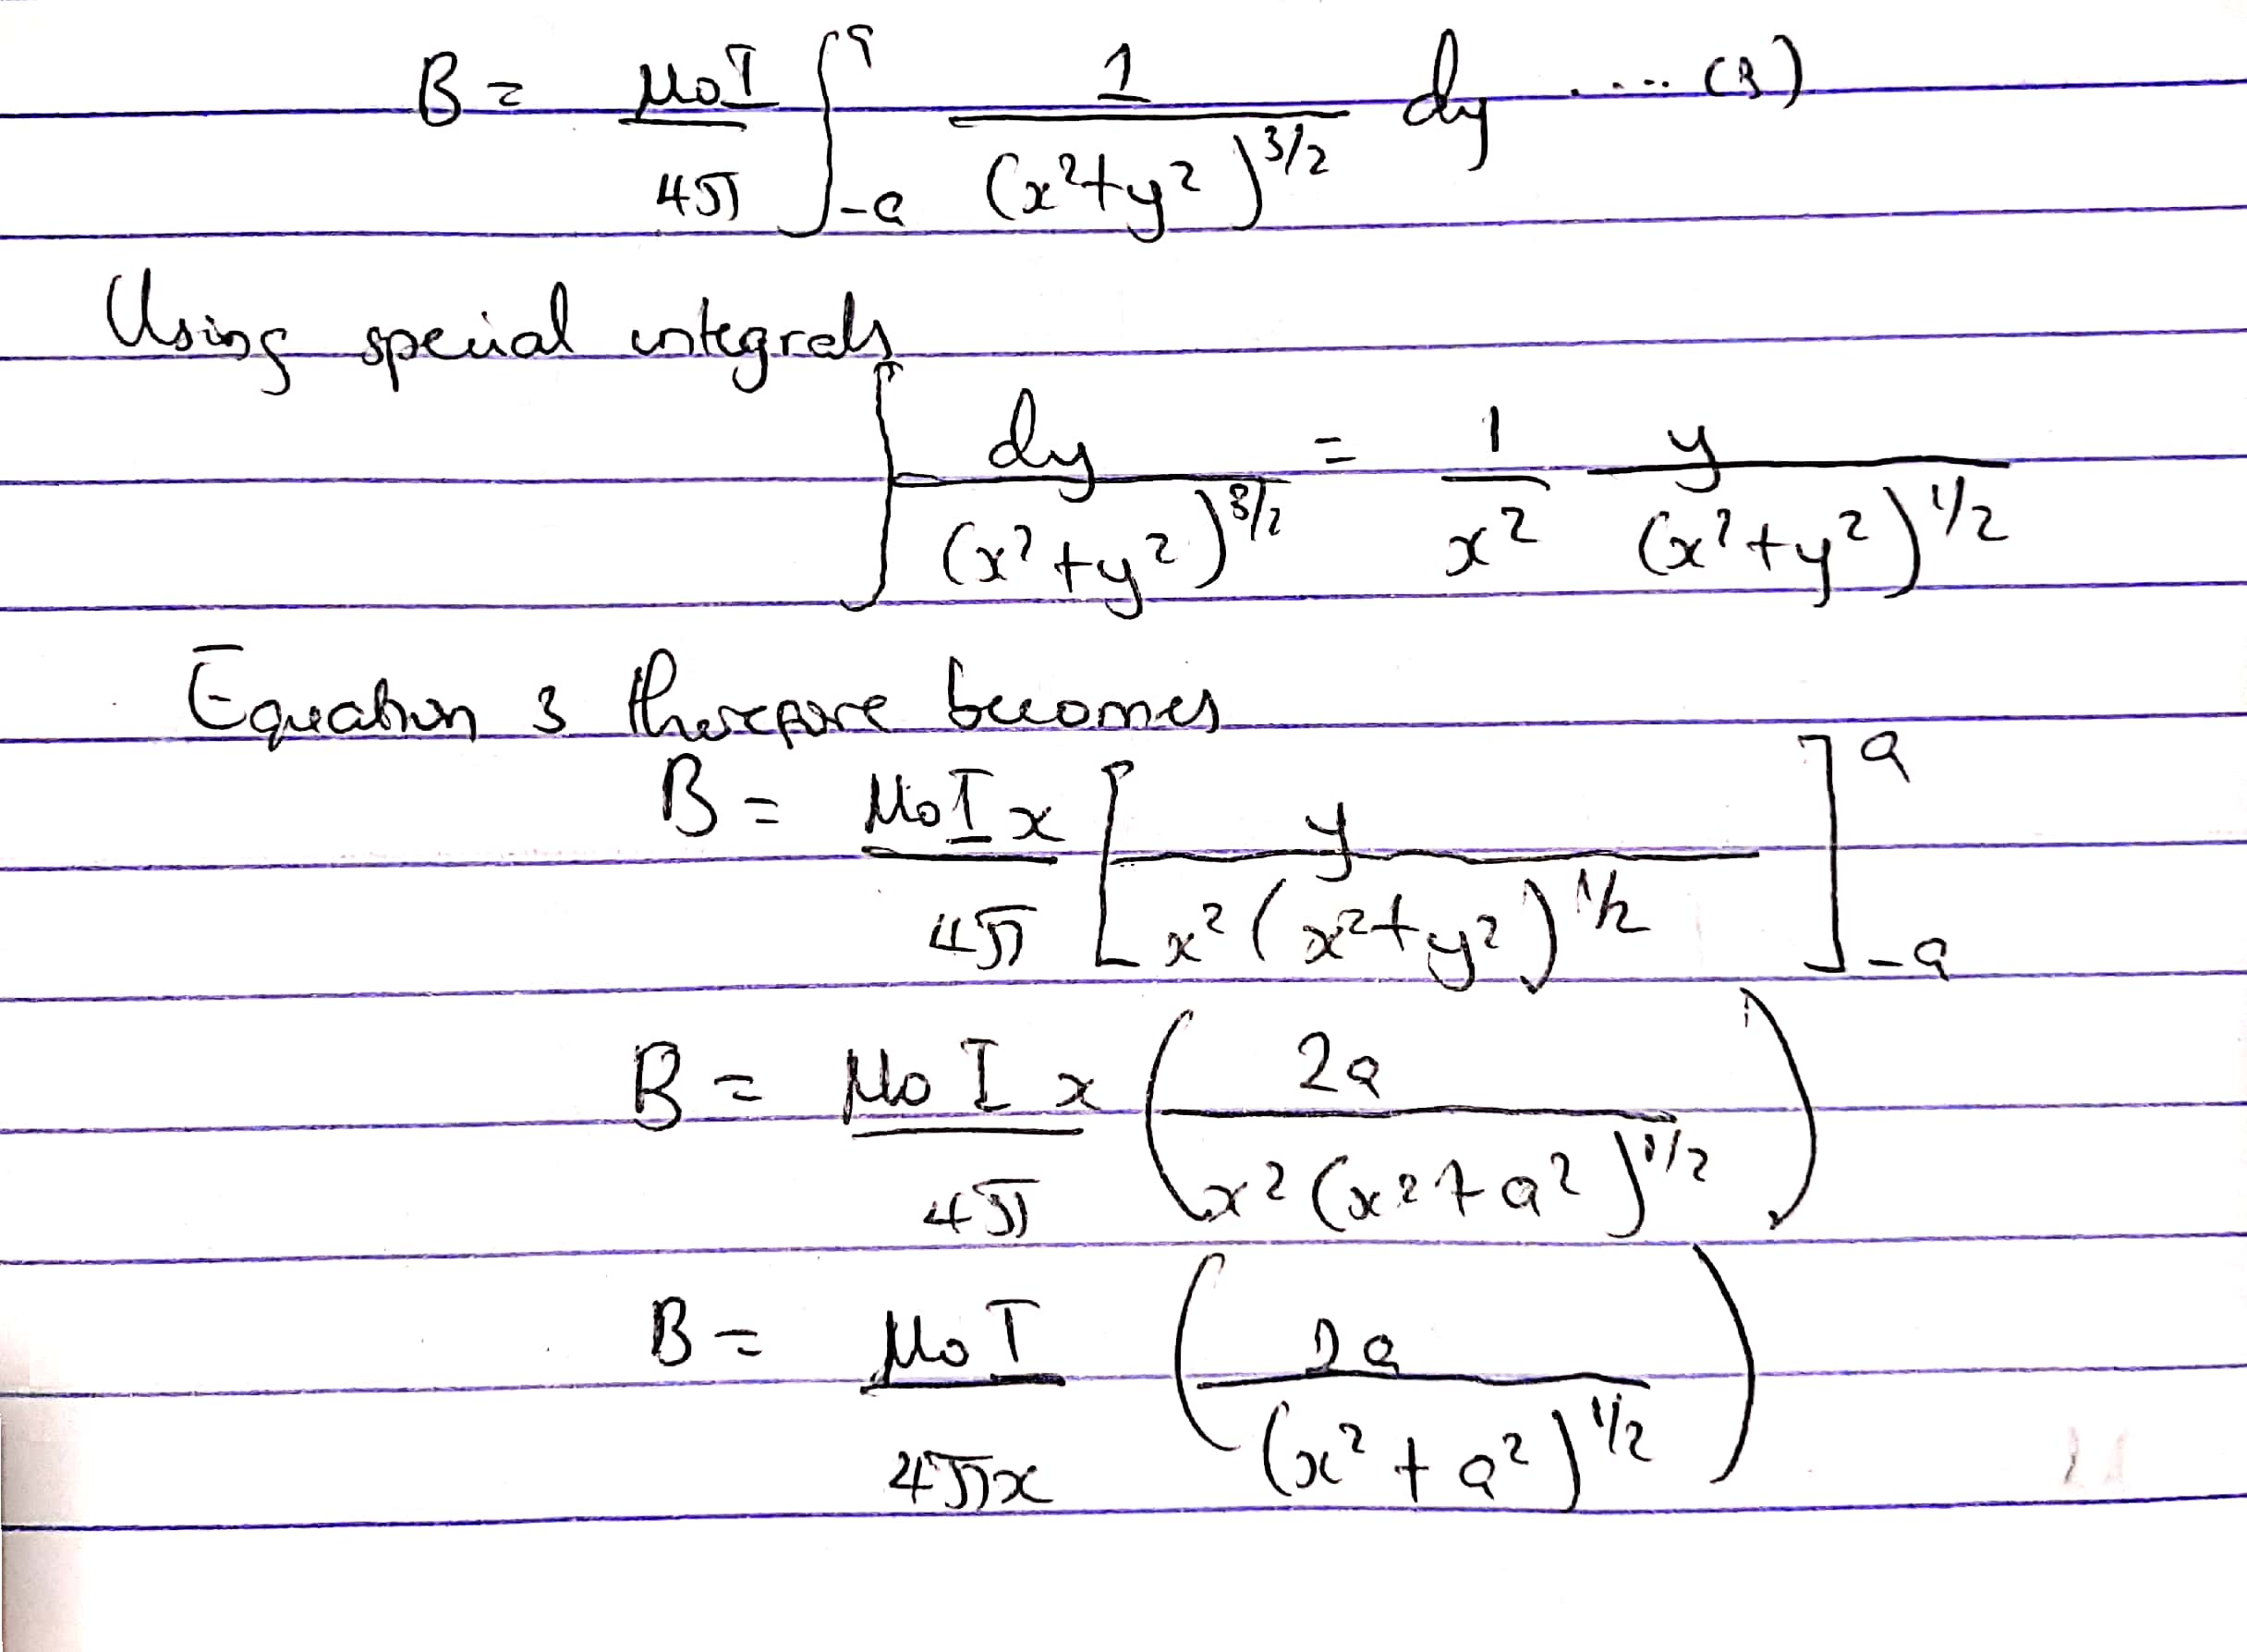 B = μ₀I/4π ∫₋ₐᵃ 1/(x²+y²)^3/2 dy .... (3)
Using special integrals
∫ dy/(x²+y²)^3/2 = 1/x² y/(x²+y²)^1/2
Equation 3 therefore becomes
B = μ₀Ix/4π [y/x²(x²+y²)^1/2]₋ₐᵃ
B = μ₀Ix/4π (2a/x²(x²+a²)^1/2)
B = μ₀I/4πx (2a/(x²+a²)^1/2)